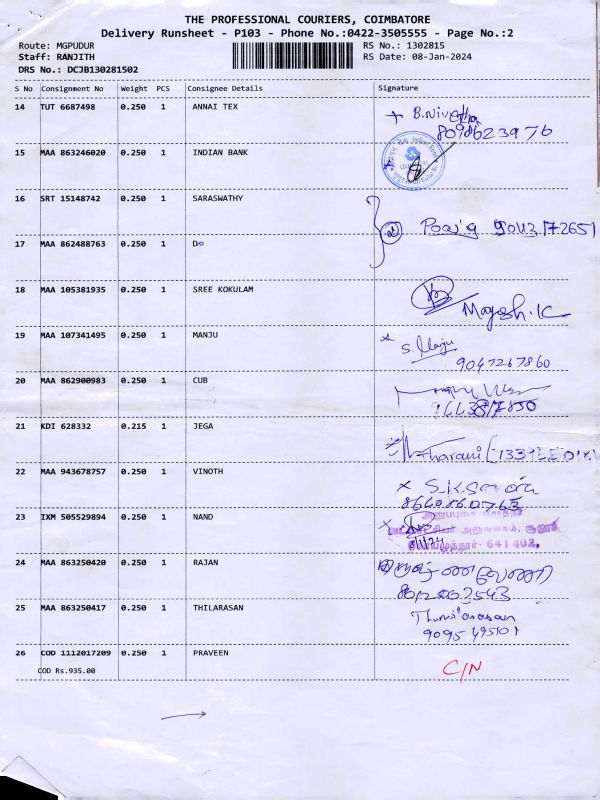 THE PROFESSIONAL COURIERS, COIMBATORE
Delivery Runsheet - P103 - Phone No.:0422-3505555 - Page No.:2
Route: MGPUDUR RS No.: 1302815
Staff: RANJITH RS Date: 08-Jan-2024
DRS No.: DCJB130281502
S No Consignment No Weight PCS Consignee Details Signature
14 TUT 6687498 0.250 1 ANNAI TEX
8098623976
15 MAA 863246020 0.250 1 INDIAN BANK
16 SRT 15148742 0.250 1 SARASWATHY
17 MAA 862488763 0.250 1 Do
18 MAA 105381935 0.250 1 SREE KOKULAM
19 MAA 107341495 0.250 1 MANJU
9047267860
20 MAA 862900983 0.250 1 CUB
21 KDI 628332 0.215 1 JEGA
22 MAA 943678757 0.250 1 VINOTH
8640860763
23 IXM 505529894 0.250 1 NAND
641 402.
24 MAA 863250420 0.250 1 RAJAN
25 MAA 863250417 0.250 1 THILARASAN
26 COD 1112017209 0.250 1 PRAVEEN
COD Rs.935.00
C/N